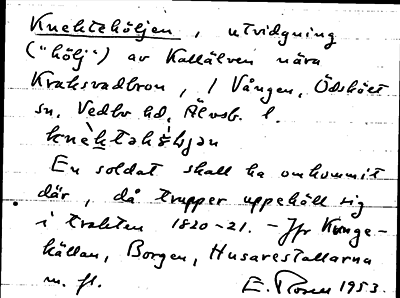 Knektehöljen, utvidgning
("hölj") av Kallälven nära
Kraksvadbron, i Vången, Ödskölt
sn, Vedbo hd, Älvsb. l.
knèktəhö̀ljən
En soldat skall ha omkommit
där, då trupper uppehöll sig
i trakten 1820-21. - Jfr Kunge-
källan, Borgen, Husarestallarna
m. fl. E. Rosen 1953.